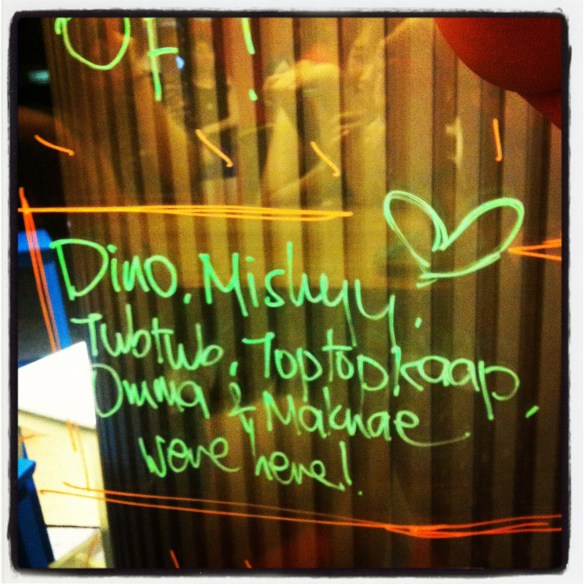 OF!
Dino, Mishyy,
Tubtub, Toptopkaap,
Omma & Maknae
were here!